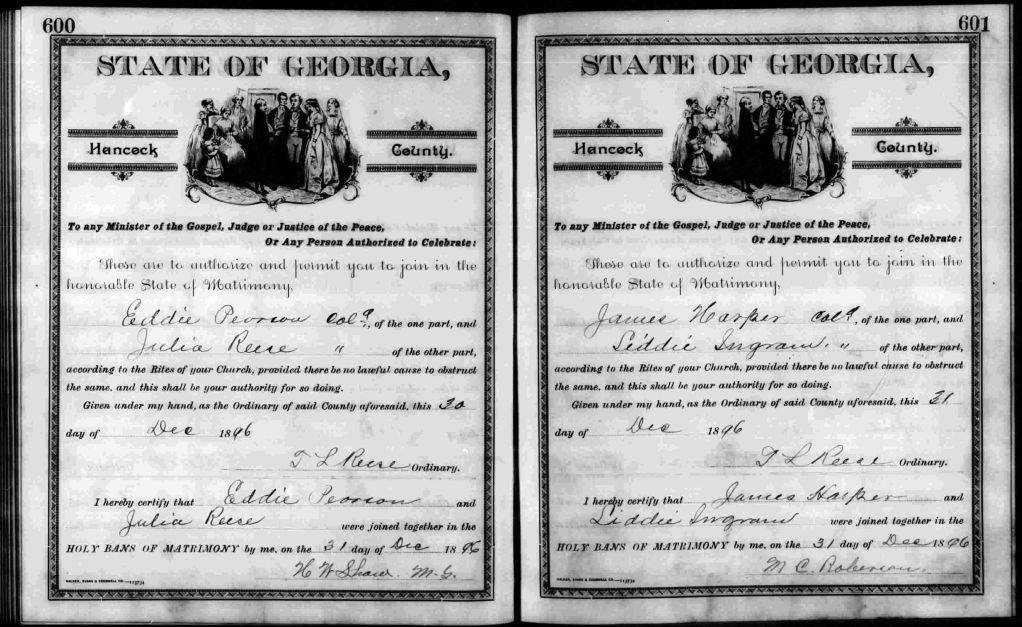 600
STATE OF GEORGIA,
Hancock County.
To any Minister of the Gospel, Judge or Justice of the Peace,
Or Any Person Authorized to Celebrate:
These are to authorize and permit you to join in the
honorable State of Matrimony,
Eddie Pearson Cold, of the one part, and
Julia Reese " of the other part,
according to the Rites of your Church, provided there be no lawful cause to obstruct
the same, and this shall be your authority for so doing.
Given under my hand, as the Ordinary of said County aforesaid, this 30
day of Dec 1896
T L Reese Ordinary.
I hereby certify that Eddie Pearson and
Julia Reese were joined together in the
HOLY BANS OF MATRIMONY by me, on the 31 day of Dec 1896
H W Shaw. M.G.
601
STATE OF GEORGIA,
Hancock County.
To any Minister of the Gospel, Judge or Justice of the Peace,
Or Any Person Authorized to Celebrate:
These are to authorize and permit you to join in the
honorable State of Matrimony,
James Harper Cold, of the one part, and
Liddie Ingram " of the other part,
according to the Rites of your Church, provided there be no lawful cause to obstruct
the same, and this shall be your authority for so doing.
Given under my hand, as the Ordinary of said County aforesaid, this 31
day of Dec 1896
T L Reese Ordinary.
I hereby certify that James Harper and
Liddie Ingram were joined together in the
HOLY BANS OF MATRIMONY by me, on the 31 day of Dec 1896
M C. Roberson.